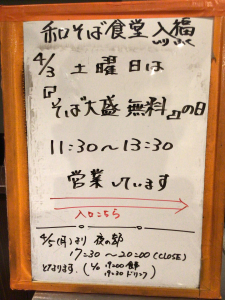 和そば食堂 入福
4/3 土曜日は
『そば大盛 無料』の日
11:30〜13:30
営業しています
入口こちら
4/5(月)より 夜の部
17:30〜20:00(CLOSE)
となります。(L/O 19:00 食事
19:30 ドリンク)